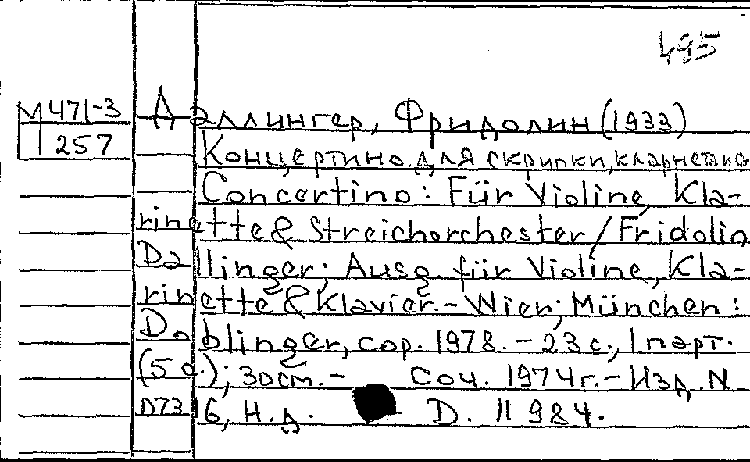 495
М 471-3 Даллингер, Фридолин (1933)
257 Концертино для скрипки, кларнета и
Concertino: Für Violine, Kla-
rinette & Streichorchester / Fridolin
Dallinger; Ausg. für Violine, Kla-
rinette & Klavier. - Wien; München:
Doblinger, cop. 1978. - 23 с., 1 парт.
(5 с.); 30 см. - Соч. 1974 г. - Изд. N
D 7316, Н.д. D. 11 984.